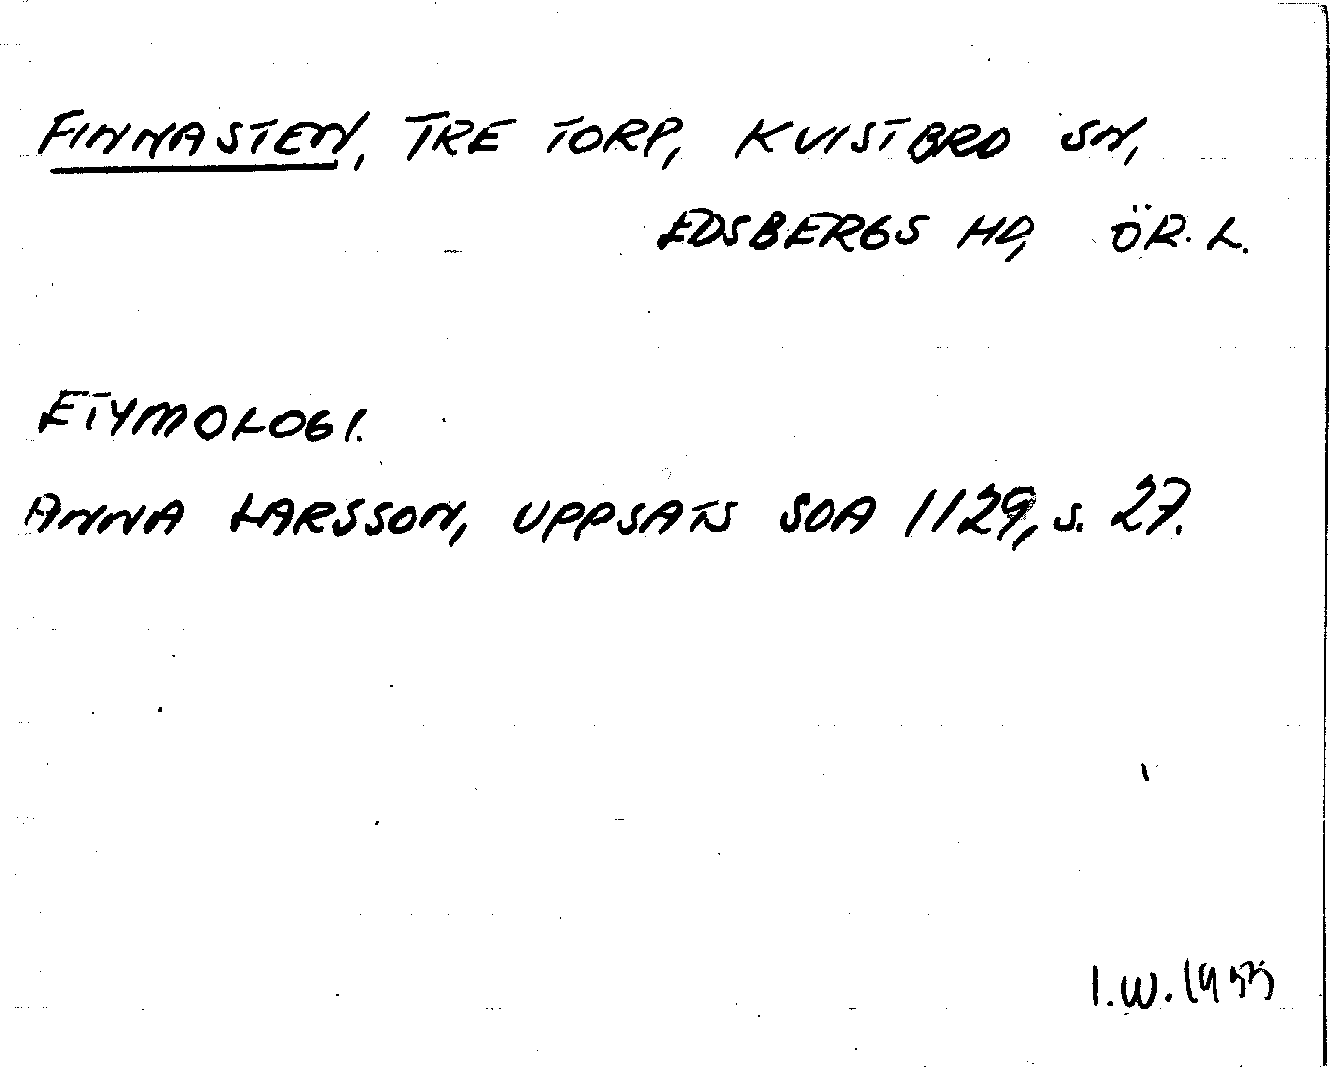 FINNASTEN, TRE TORP, KVISTBRO SN,
EDSBERGS HD, ÖR. L.
ETYMOLOGI.
ANNA LARSSON, UPPSATS SOA 1129, s. 27.
I.W.